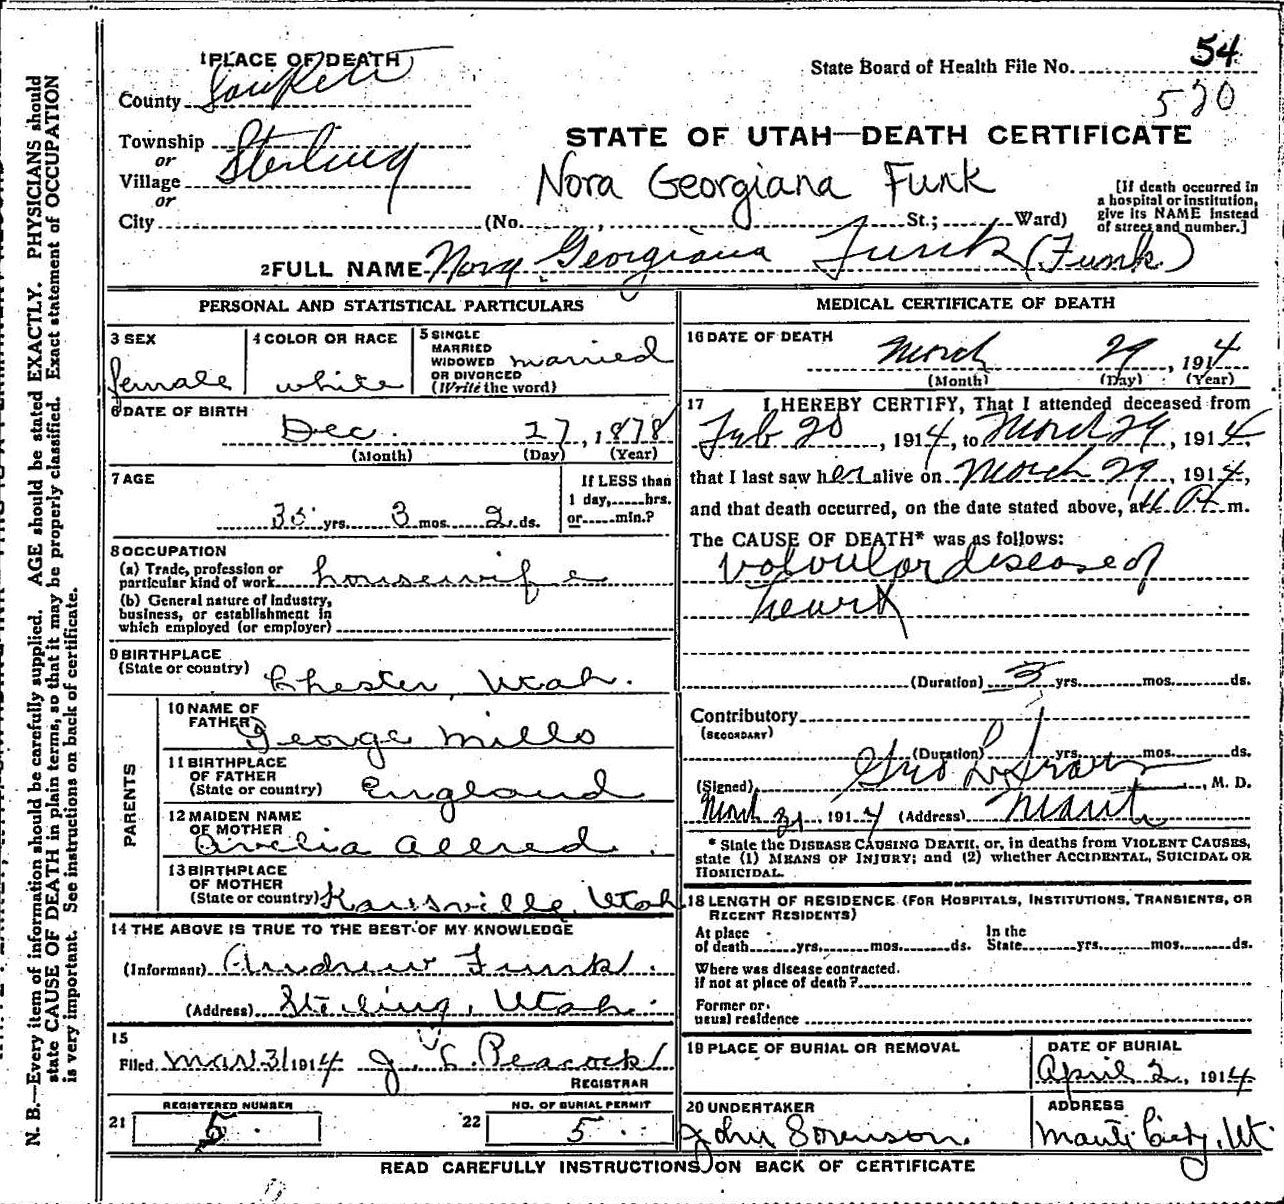 1 PLACE OF DEATH
State Board of Health File No. 54
County Sanpete
520
STATE OF UTAH—DEATH CERTIFICATE
Township
or
Village Sterling
or
Nora Georgiana Funk
[If death occurred in
a hospital or institution,
give its NAME instead
of street and number.]
City (No. , St.; Ward)
2 FULL NAME Nora Georgiana Funk (Funk)
PERSONAL AND STATISTICAL PARTICULARS
3 SEX
female
4 COLOR OR RACE
white
5 SINGLE
MARRIED
WIDOWED
OR DIVORCED
(Write the word)
married
6 DATE OF BIRTH
Dec. 27, 1878
(Month) (Day) (Year)
7 AGE
35 yrs. 3 mos. 2 ds.
If LESS than
1 day, hrs.
or min.?
8 OCCUPATION
(a) Trade, profession or
particular kind of work housewife
(b) General nature of Industry,
business, or establishment in
which employed (or employer)
9 BIRTHPLACE
(State or country) Chester, Utah.
PARENTS
10 NAME OF
FATHER George Mills
11 BIRTHPLACE
OF FATHER
(State or country) England
12 MAIDEN NAME
OF MOTHER
Allred.
13 BIRTHPLACE
OF MOTHER
(State or country) Utah
14 THE ABOVE IS TRUE TO THE BEST OF MY KNOWLEDGE
(Informant) Andrew Funk.
(Address) Sterling, Utah.
15
Filed Mar 31 1914 Peacock
REGISTRAR
21
REGISTERED NUMBER
5.
22
NO. OF BURIAL PERMIT
5
MEDICAL CERTIFICATE OF DEATH
16 DATE OF DEATH
March 29, 1914
(Month) (Day) (Year)
17 I HEREBY CERTIFY, That I attended deceased from
Feb 20, 1914, to March 29, 1914
that I last saw her alive on March 29, 1914,
and that death occurred, on the date stated above, at m.
The CAUSE OF DEATH* was as follows:
Valvular disease of
heart
(Duration) 3 yrs. mos. ds.
Contributory
(SECONDARY)
(Duration) yrs. mos. ds.
(Signed) , M. D.
March 31, 1914 (Address) Manti
* State the DISEASE CAUSING DEATH, or, in deaths from VIOLENT CAUSES,
state (1) MEANS OF INJURY; and (2) whether ACCIDENTAL, SUICIDAL OR
HOMICIDAL.
18 LENGTH OF RESIDENCE (FOR HOSPITALS, INSTITUTIONS, TRANSIENTS, OR
RECENT RESIDENTS)
At place
of death yrs. mos. ds.
In the
State yrs. mos. ds.
Where was disease contracted.
if not at place of death?
Former or
usual residence
19 PLACE OF BURIAL OR REMOVAL
DATE OF BURIAL
April 2, 1914
20 UNDERTAKER
John Sorenson.
ADDRESS
Manti City, Ut.
READ CAREFULLY INSTRUCTIONS ON BACK OF CERTIFICATE
N. B.—Every item of information should be carefully supplied. AGE should be stated EXACTLY. PHYSICIANS should
state CAUSE OF DEATH in plain terms, so that it may be properly classified. Exact statement of OCCUPATION
is very important. See instructions on back of certificate.